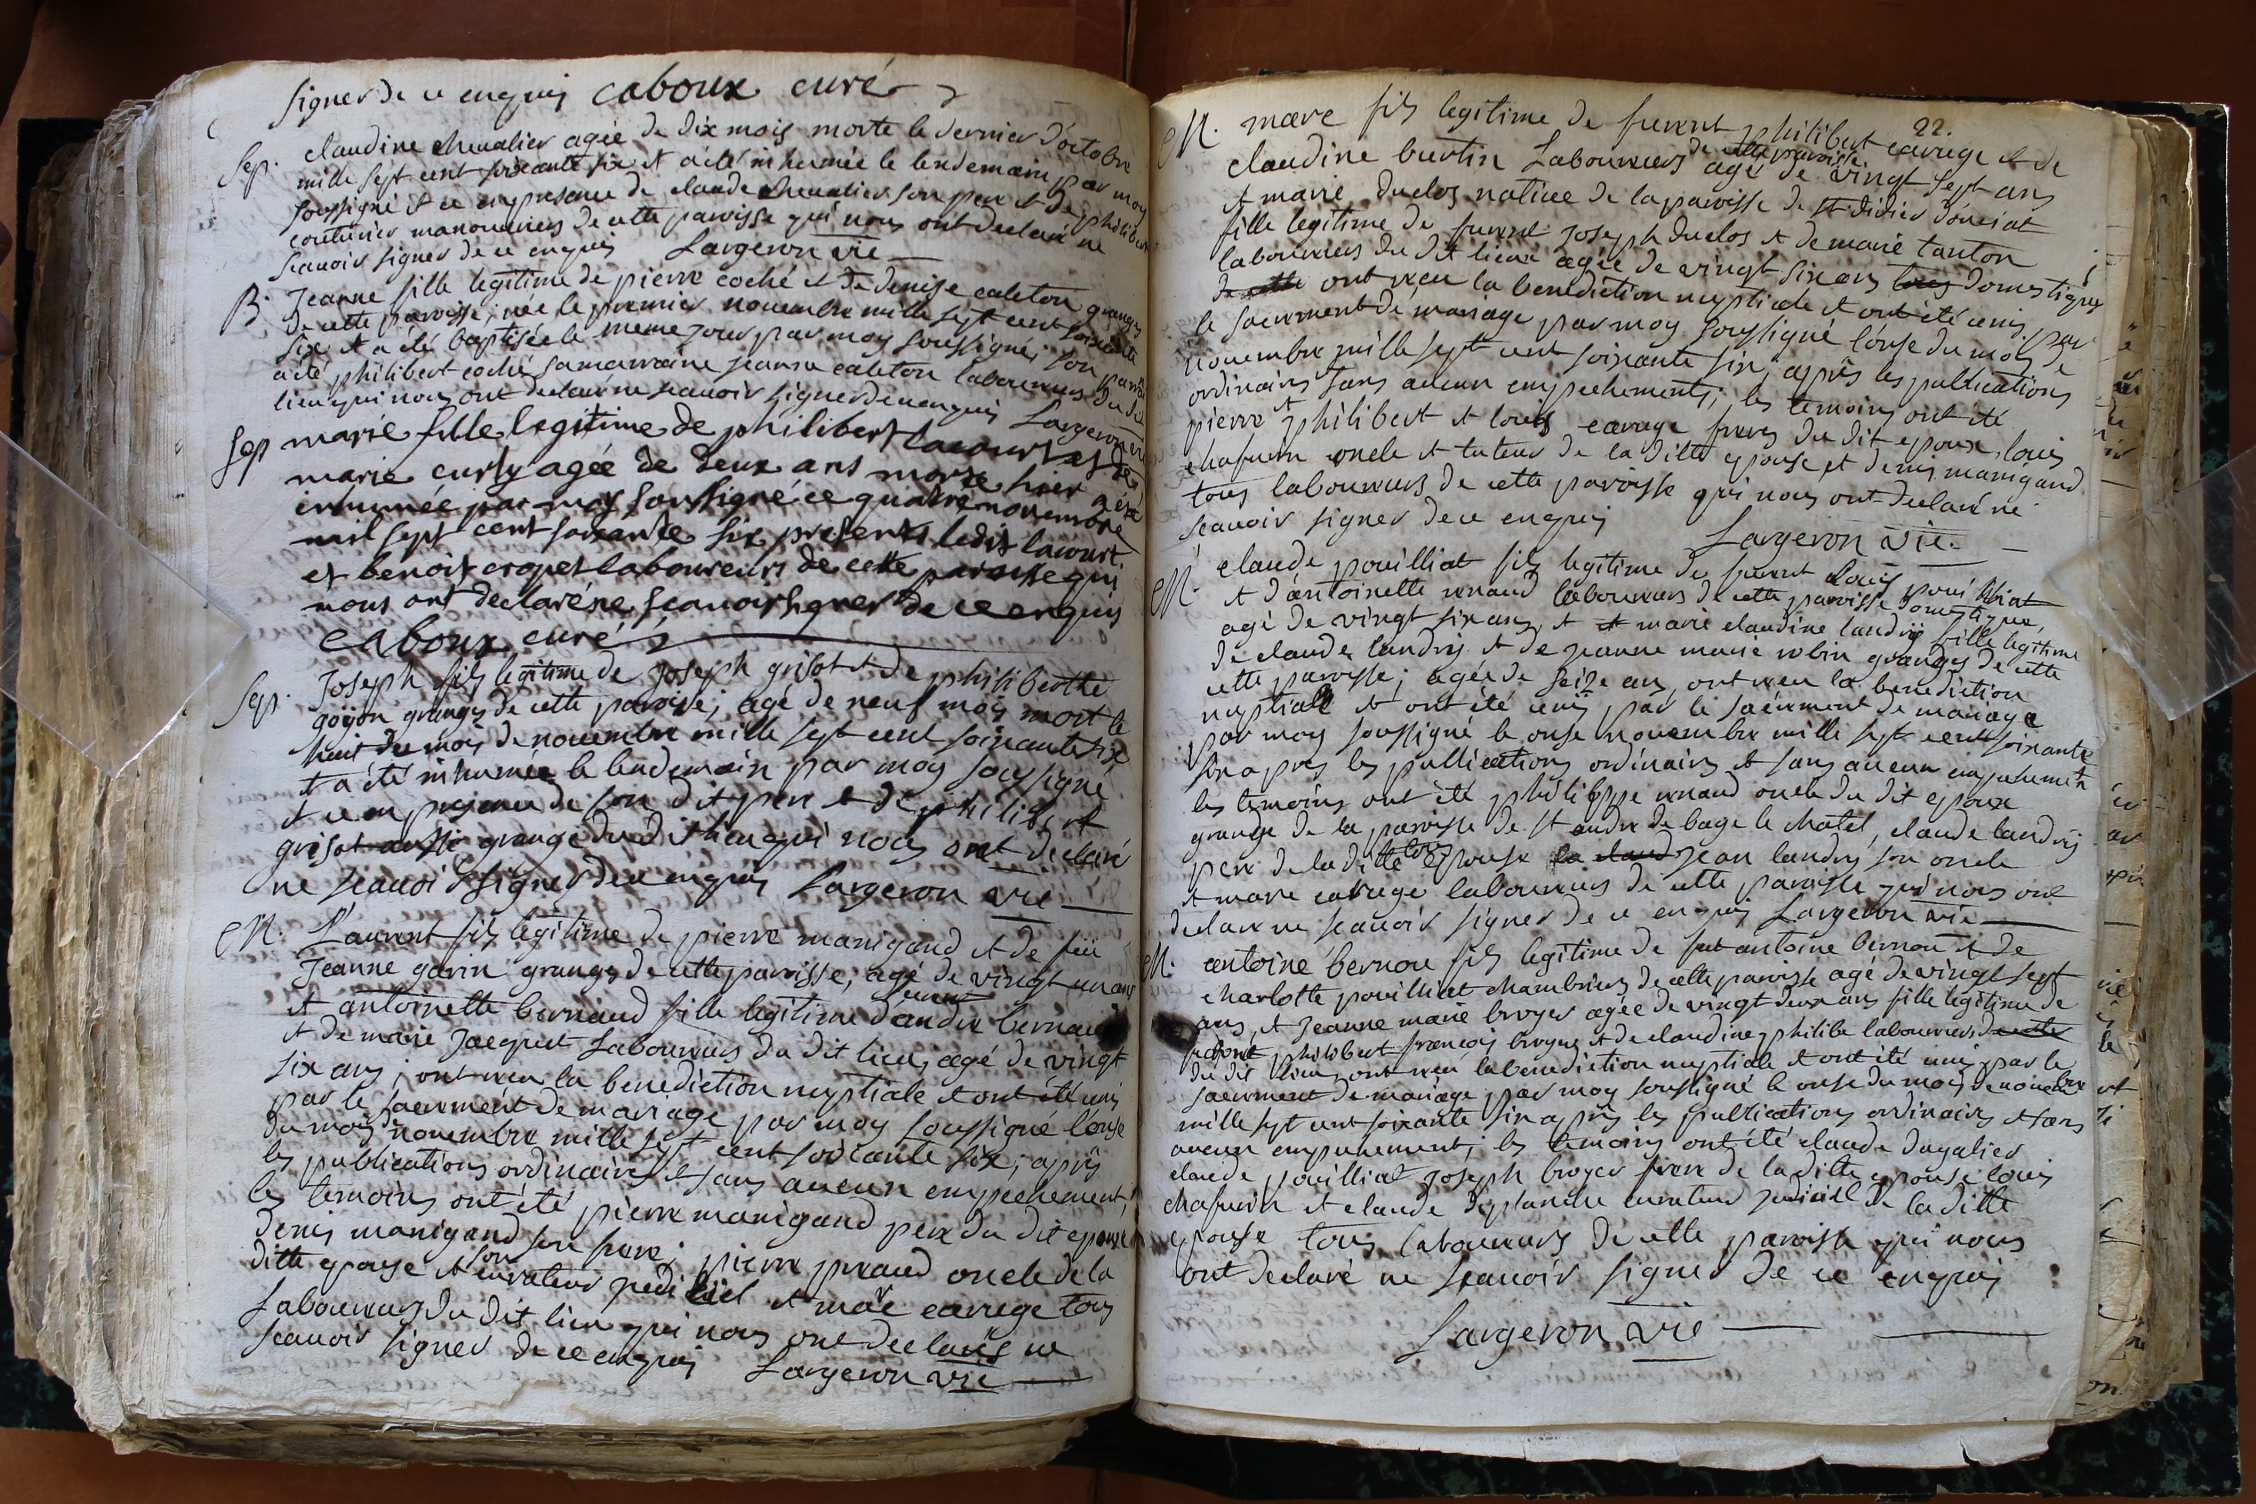 signer de ce enquis caboux curé
Sep. claudine chevalier agée de dix mois morte le dernier d'octobre
mille sept cent soixante six et a été inhumée le lendemain par moy
soussigné et ce en presence de claude chevalier son pere et de philibert
couturier manouvriers de cette paroisse qui nous ont declaré ne
scavoir signer de ce enquis Largeron vic
B. Jeanne fille legitime de pierre coché et de denise caleton granges
de cette paroisse, née le premier novembre mille sept cent soixante
six et a été baptisée le meme jour par moy soussigné, son parain
a été philibert coché sa marraine jeanne caleton laboureurs du dit
lieu qui nous ont declaré ne scavoir signer de ce enquis Largeron vic
Sep marie fille legitime de philibert lacourt et de
marie curty agée de deux ans morte hier a été
inhumée par moy soussigné ce quatre novembre
mil sept cent soixante six presents ledit lacourt
et benoit cropet laboureurs de cette paroisse qui
nous ont declaré ne scavoir signer de ce enquis
caboux curé
Sep. Joseph fils legitime de Joseph grisot et de philiberthe
goyon granges de cette paroisse; agé de neuf moys mort le
huit du moys de novembre mille sept cent soixante six
et a été inhumée le lendemain par moy soussigné
et ce en presence de son dit pere et de philibert
grisot aussi grangé du dit lieu qui nous ont declaré
ne scavoir signer de ce enquis Largeron vic
M. Laurent fils legitime de pierre manigand et de feüe
Jeanne gavin granges de cette paroisse, agé de vingt un ans
et antoinette bernaud fille legitime de furent andre bernaud
et de marie Jacquet Laboureurs du dit lieu, agé de vingt
six ans; ont receu la benediction nuptiale et ont été unis
par le sacrement de mariage par moy soussigné l'onse
du mois de novembre mille sept cent soixante six; après
les publications ordinaires et sans aucun empechement;
les temoins ont été pierre manigand pere du dit epoux
denis manigand son frere; pierre preaud oncle de la
ditte epouse et son curateur judiciel et marc carruge tous
Laboureurs du dit lieu qui nous ont declarés ne
scavoir signer de ce enquis Largeron vic
22.
M. marc fils legitime de furent philibert carruge et de
claudine burtin Laboureurs de cette paroisse agé de vingt sept ans
et marie duclos native de la paroisse de st didier d'oussiat
fille legitime de furent Joseph duclos et de marie tanton
laboureurs du dit lieu agée de vingt six ans tous domestiques
de cette ont receu la benediction nuptiale et ont été unis par
le sacrement de mariage par moy soussigné l'onse du moy de
novembre mille sept cent soixante six, après les publications
ordinaires sans aucun empechements; les temoins ont été
pierre et philibert et louis carruge freres du dit epoux, louis
chafurin oncle et tuteur de la ditte epouse et denis manigand
tous laboureurs de cette paroisse qui nous ont declaré ne
scavoir signer de ce enquis Largeron vic.
M. claude pouilliat fils legitime de furent Louis pouilliat
et d'antoinette renaud laboureurs de cette paroisse domestique,
agé de vingt six ans, et et marie claudine landry fille legitime
de claude landry et de jeanne marie robin granges de cette
cette paroisse; agée de seize ans, ont receu la benediction
nuptiale et ont été unis par le sacrement de mariage
par moy soussigné le onse novembre mille sept cent soixante
six après les publications ordinaires et sans aucun empechement
les temoins ont été philippe renaud oncle du dit epoux
grangé de la paroisse de st andre de bage le chatel, claude landry
pere de la ditte epouse la claud jean landry son oncle
et marc carruge laboureurs de cette paroisse qui nous ont
declaré ne scavoir signer de ce enquis Largeron vic
M. antoine bernou fils legitime de fut antoine bernou et de
charlotte pouilliat chambriers de cette paroisse agé de vingt sept
ans, et Jeanne marie broyer agée de vingt deux ans fille legitime de
furent philibert françois broyer et de claudine philibe laboureurs de cette
du dit lieu, ont receu la benediction nuptiale et ont été unis par le
sacrement de mariage par moy soussigné le onse du mois de novembre
mille sept cent soixante six après les publications ordinaires et sans
aucun empechement; les temoins ont été claude dagalier
claude pouilliat Joseph broyer frere de la ditte epouse louis
chafurin et claude deplanche curateur judiciel de la ditte
epouse tous laboureurs de cette paroisse qui nous
ont declaré ne scavoir signer de ce enquis
Largeron vic